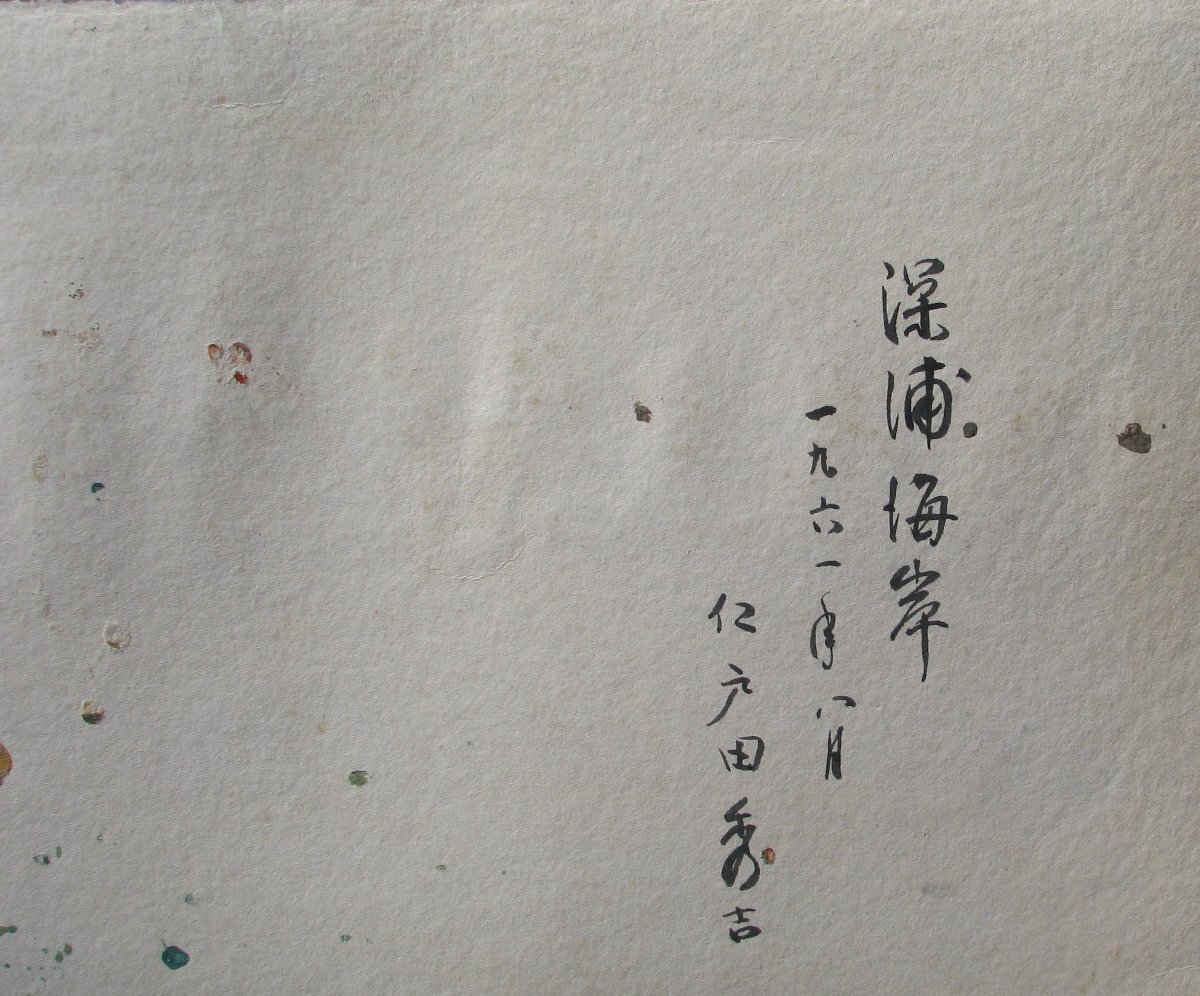 深浦海岸
一九六一年八月
仁戸田秀吉